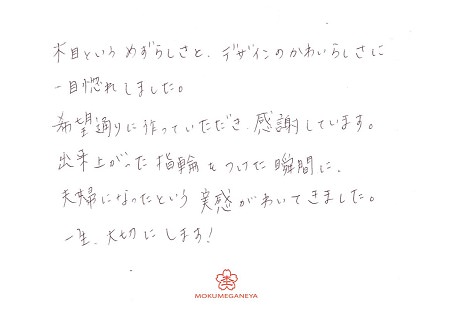 木目というめずらしさと、デザインのかわいらしさに
一目惚れしました。
希望通りに作っていただき、感謝しています。
出来上がった指輪をつけた瞬間に、
夫婦になったという実感がわいてきました。
一生、大切にします!
MOKUMEGANEYA